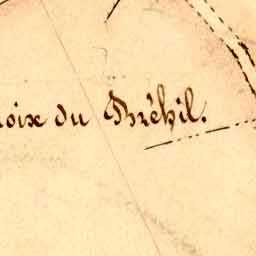 oix du Bréhil.